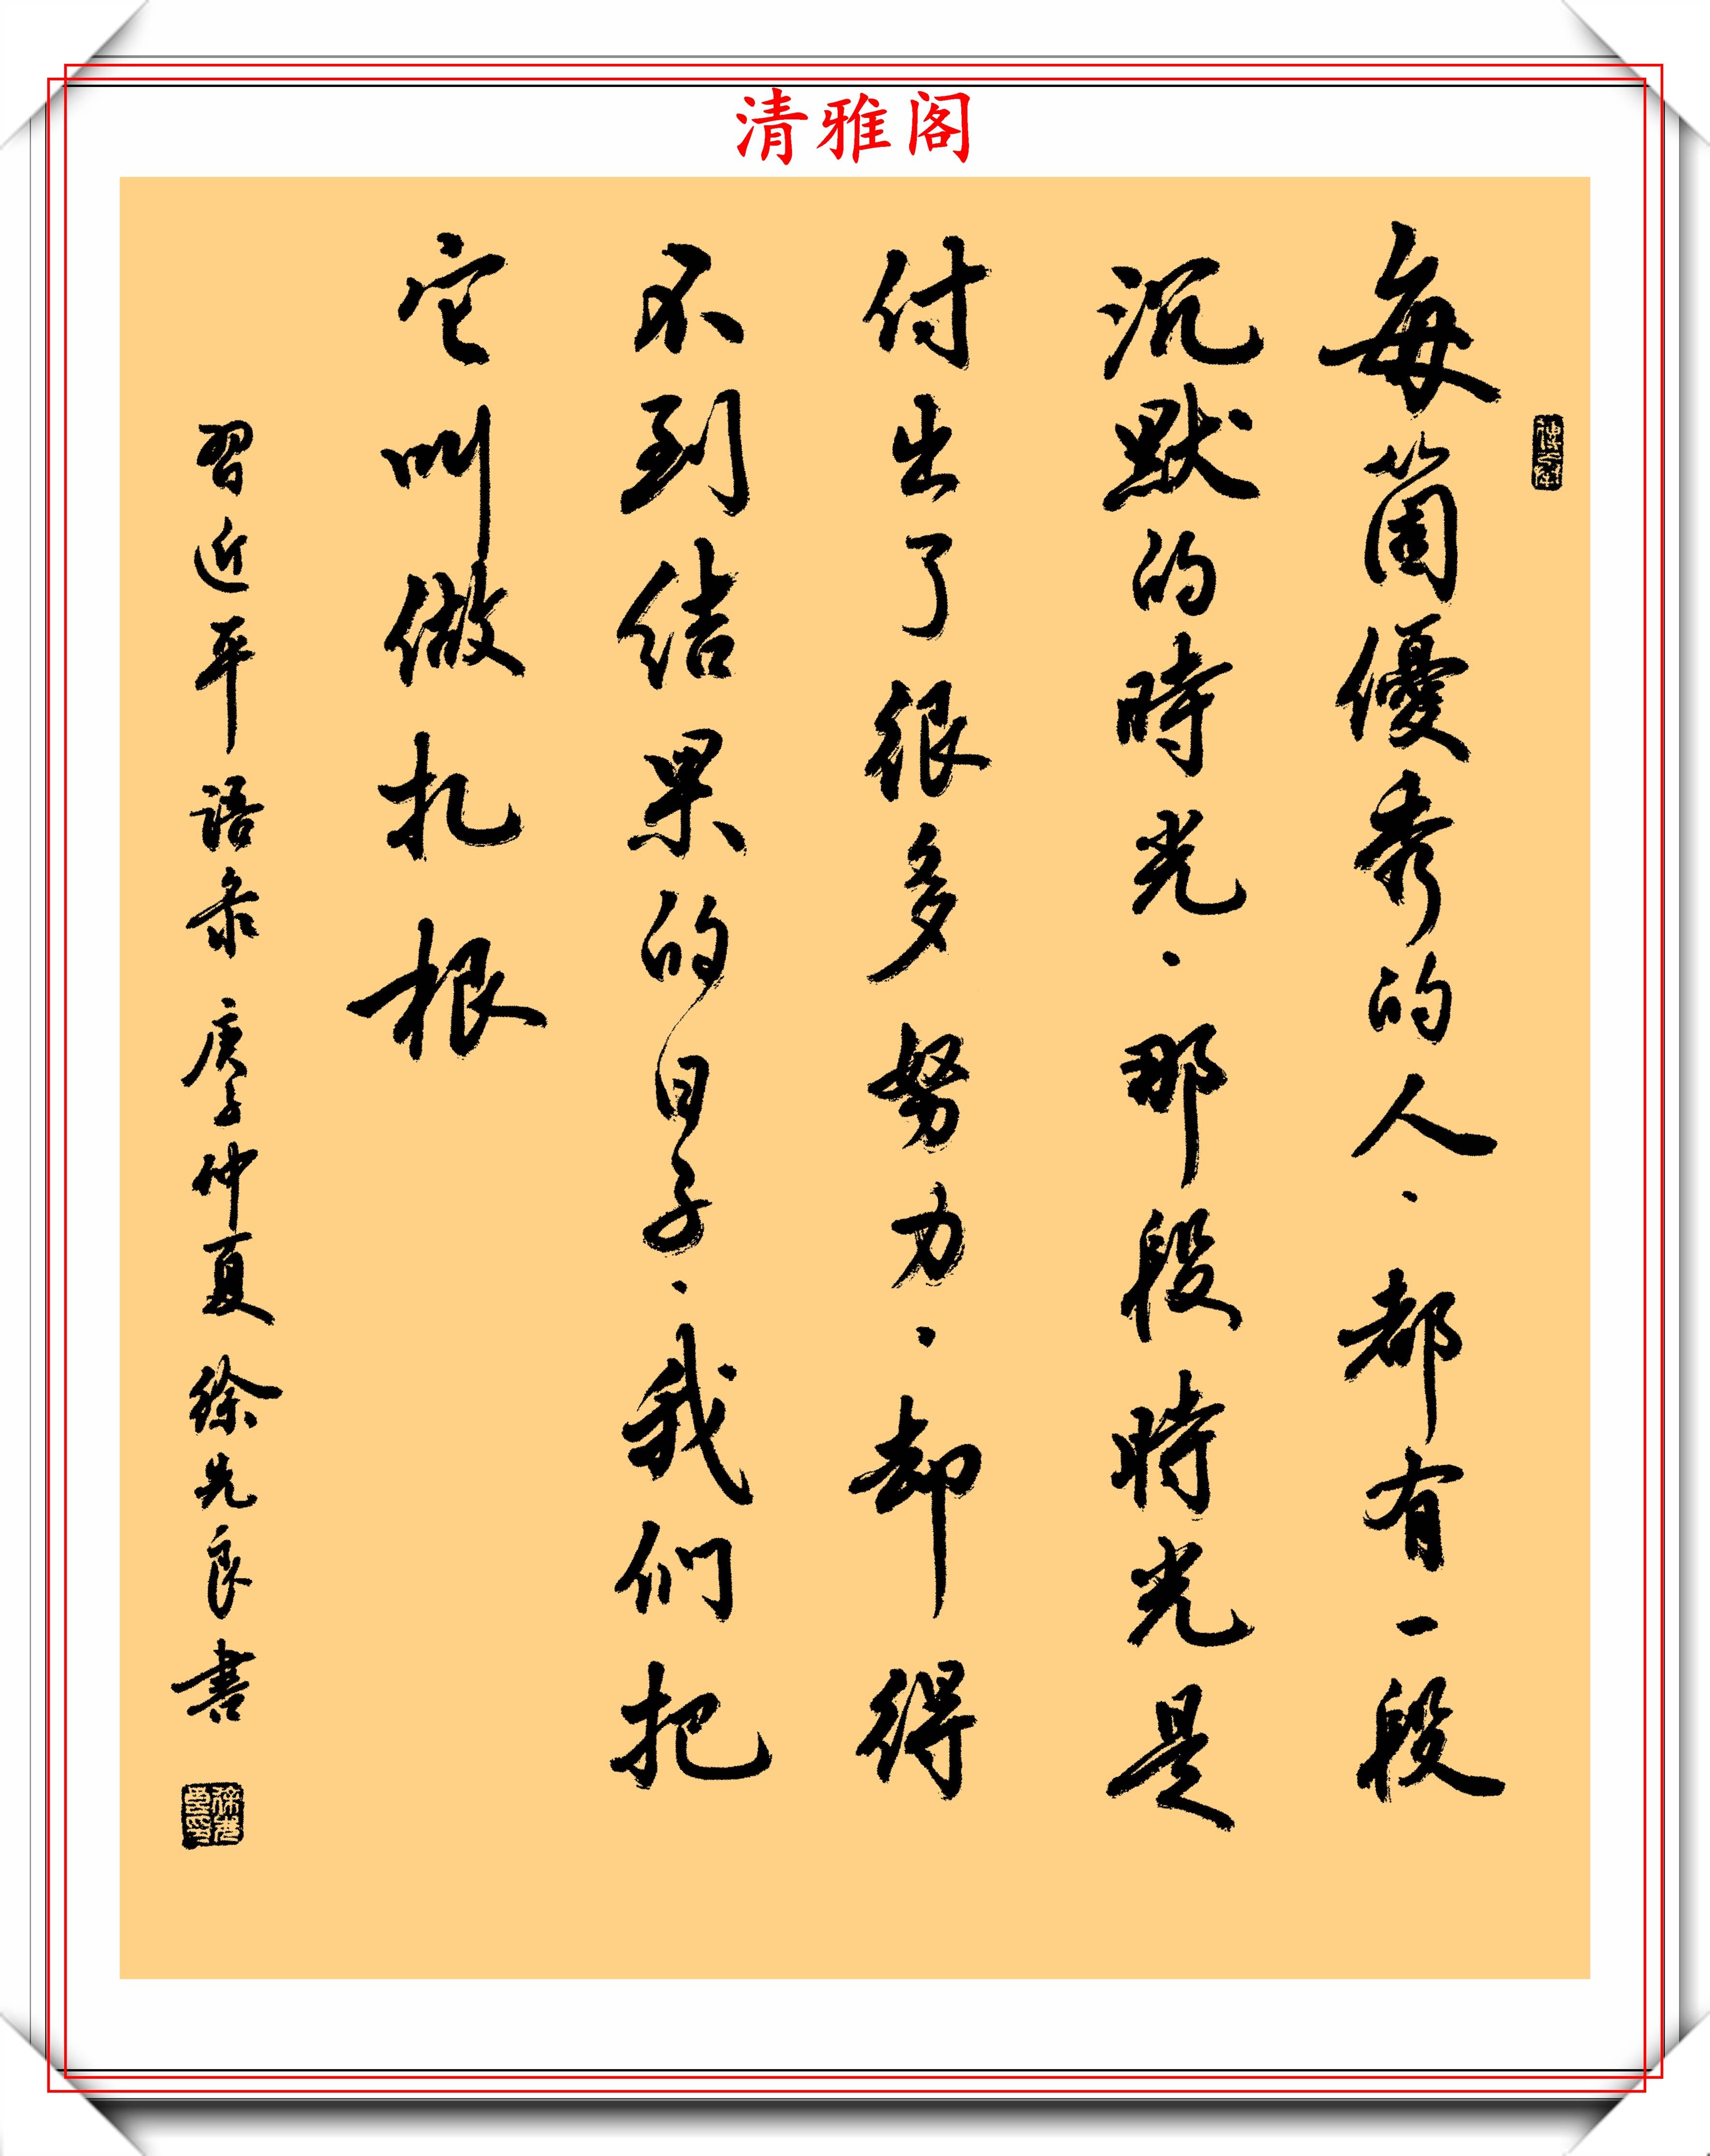 清雅阁
每箇優秀的人·都有一段
沉默的時光·那段時光是
付出了很多努力·却得
不到结果的日子·我们把
它叫做扎根
習近平语录 庚子仲夏 徐先良書